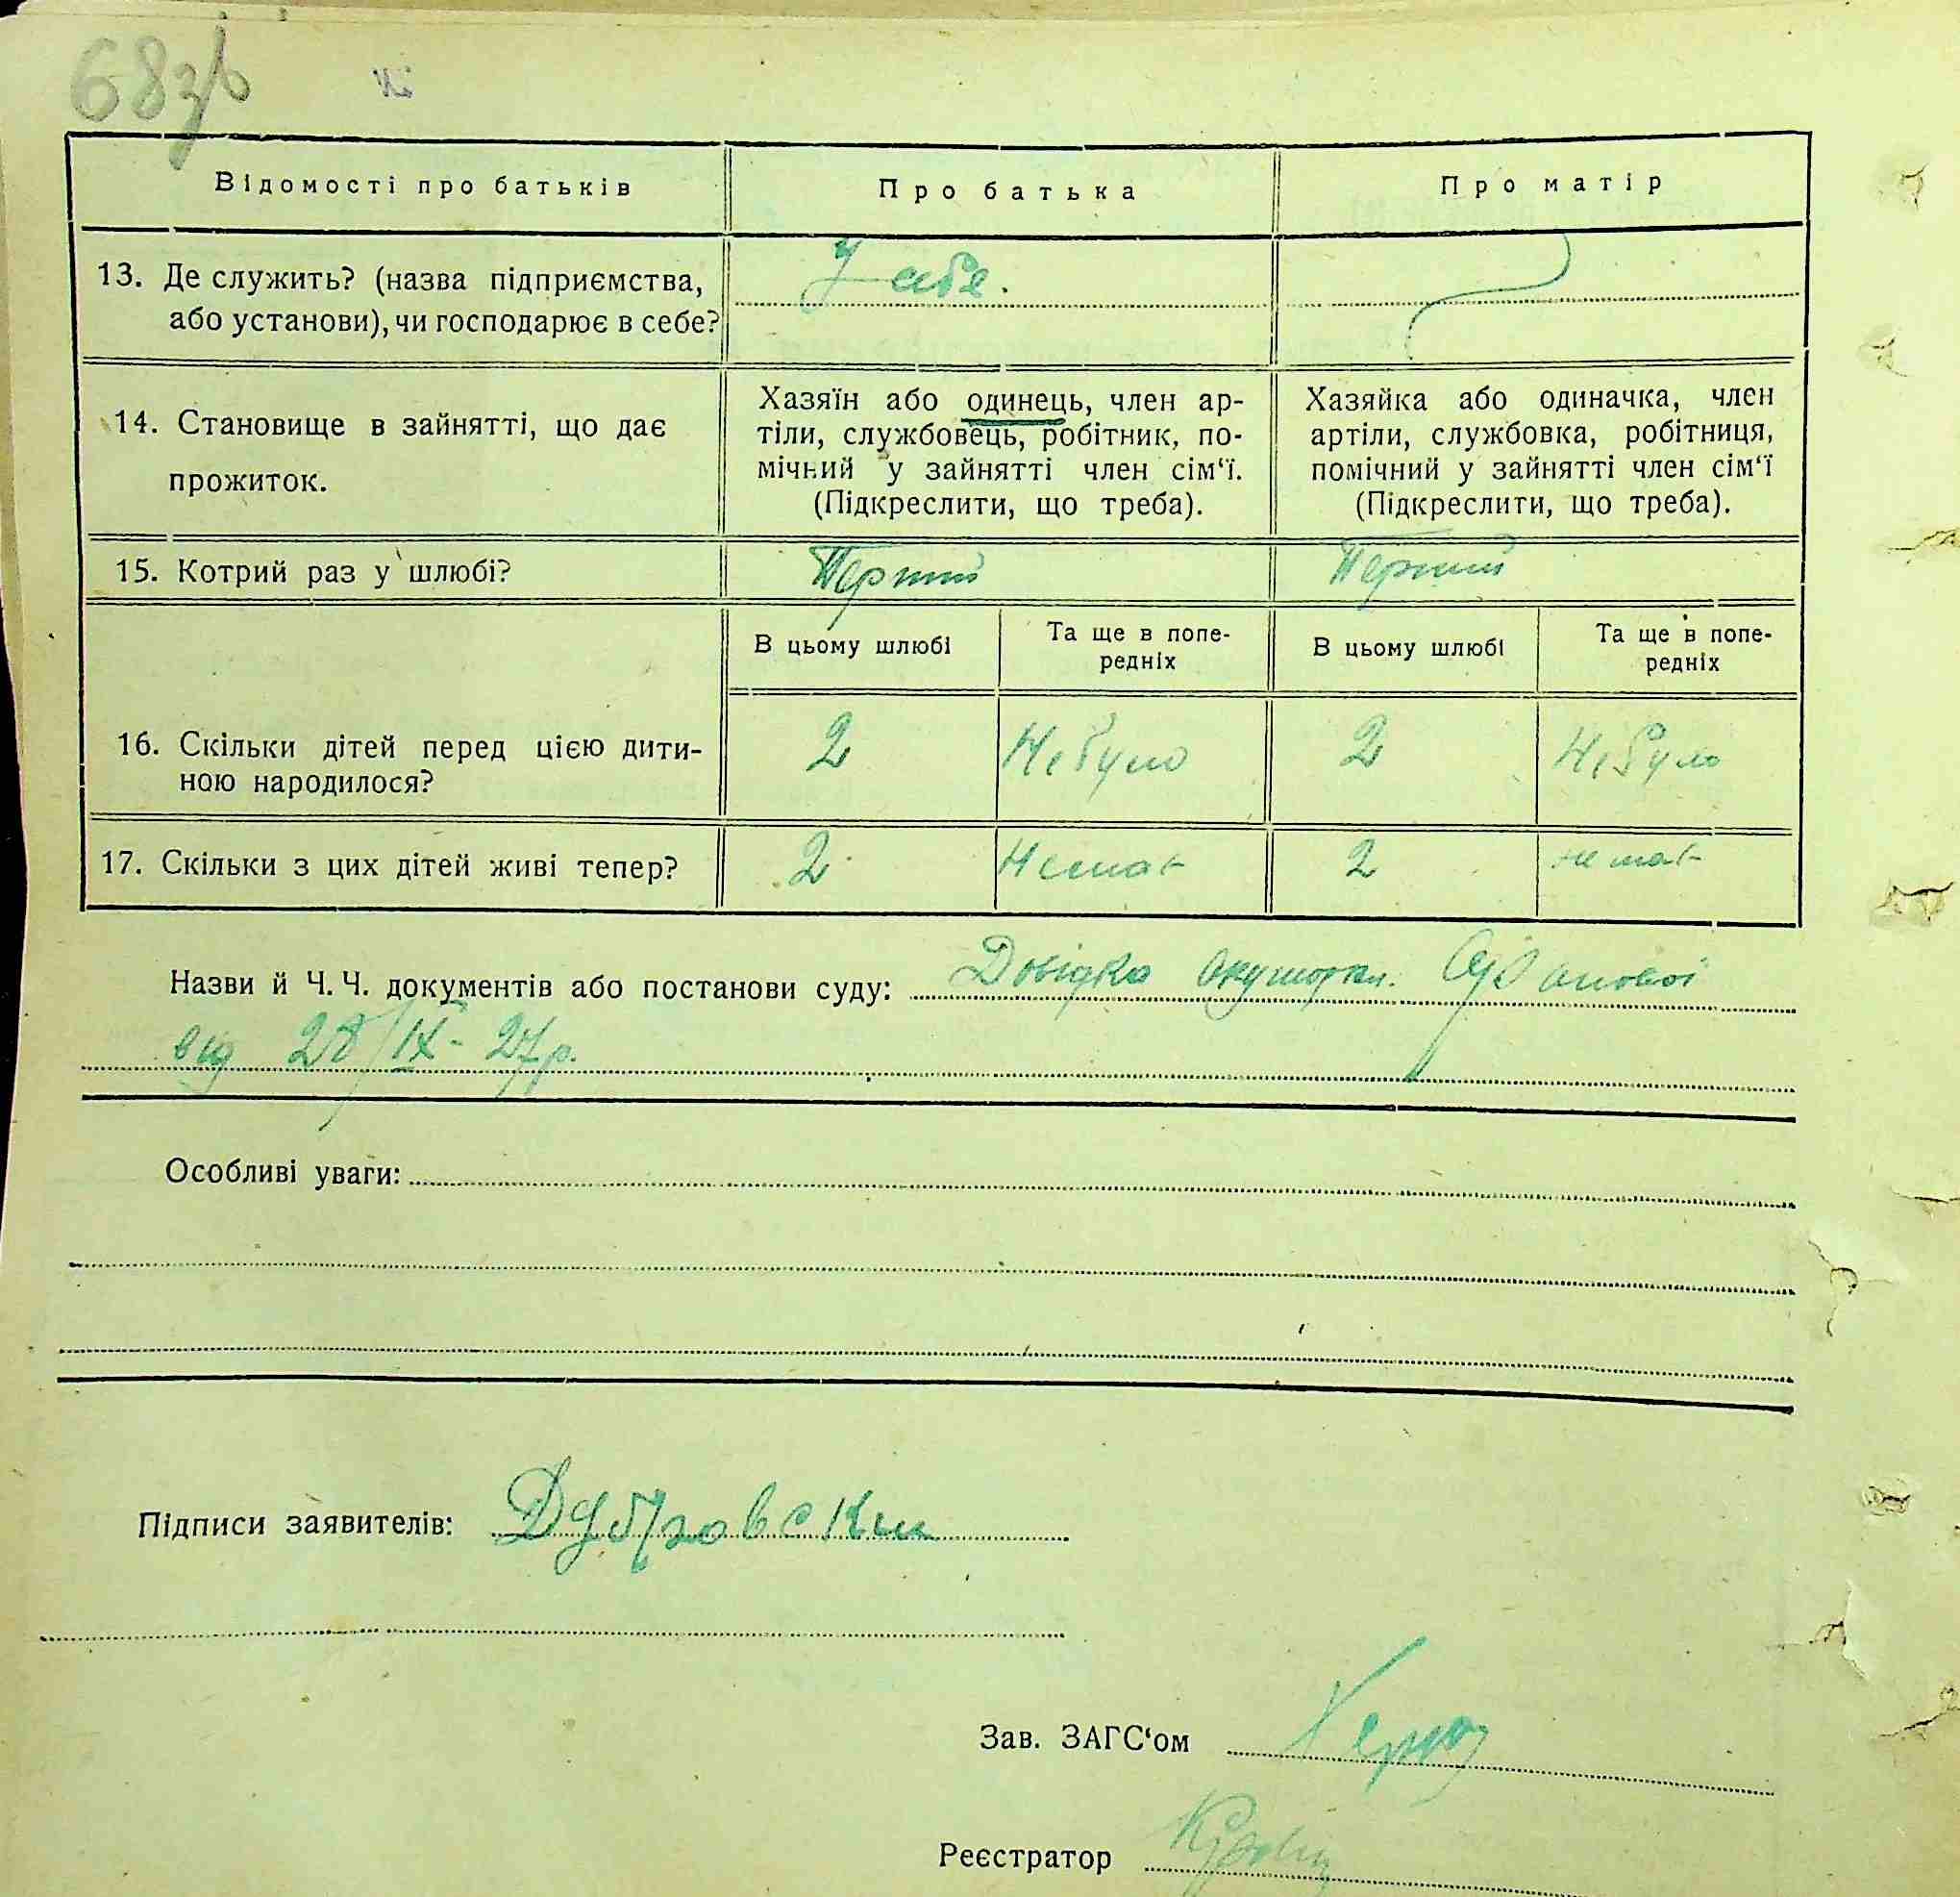 68зв
Відомості про батьків
Про батька
Про матір
13. Де служить? (назва підприємства,
або установи), чи господарює в себе?
У себе.
14. Становище в зайнятті, що дає
прожиток.
Хазяїн або одинець, член ар-
тіли, службовець, робітник, по-
мічний у зайнятті член сім‘ї.
(Підкреслити, що треба).
Хазяйка або одиначка, член
артіли, службовка, робітниця,
помічний у зайнятті член сім‘ї
(Підкреслити, що треба).
15. Котрий раз у шлюбі?
Перший
Перший
В цьому шлюбі
Та ще в попе-
редніх
В цьому шлюбі
Та ще в попе-
редніх
16. Скільки дітей перед цією дити-
ною народилося?
2
Не було
2
Не було
17. Скільки з цих дітей живі тепер?
2
Немає
2
немає
Назви й Ч. Ч. документів або постанови суду: Довідка
від 28/IX- 27р.
Особливі уваги:
Підписи заявителів: Дубровски
Зав. ЗАГС‘ом
Реєстратор